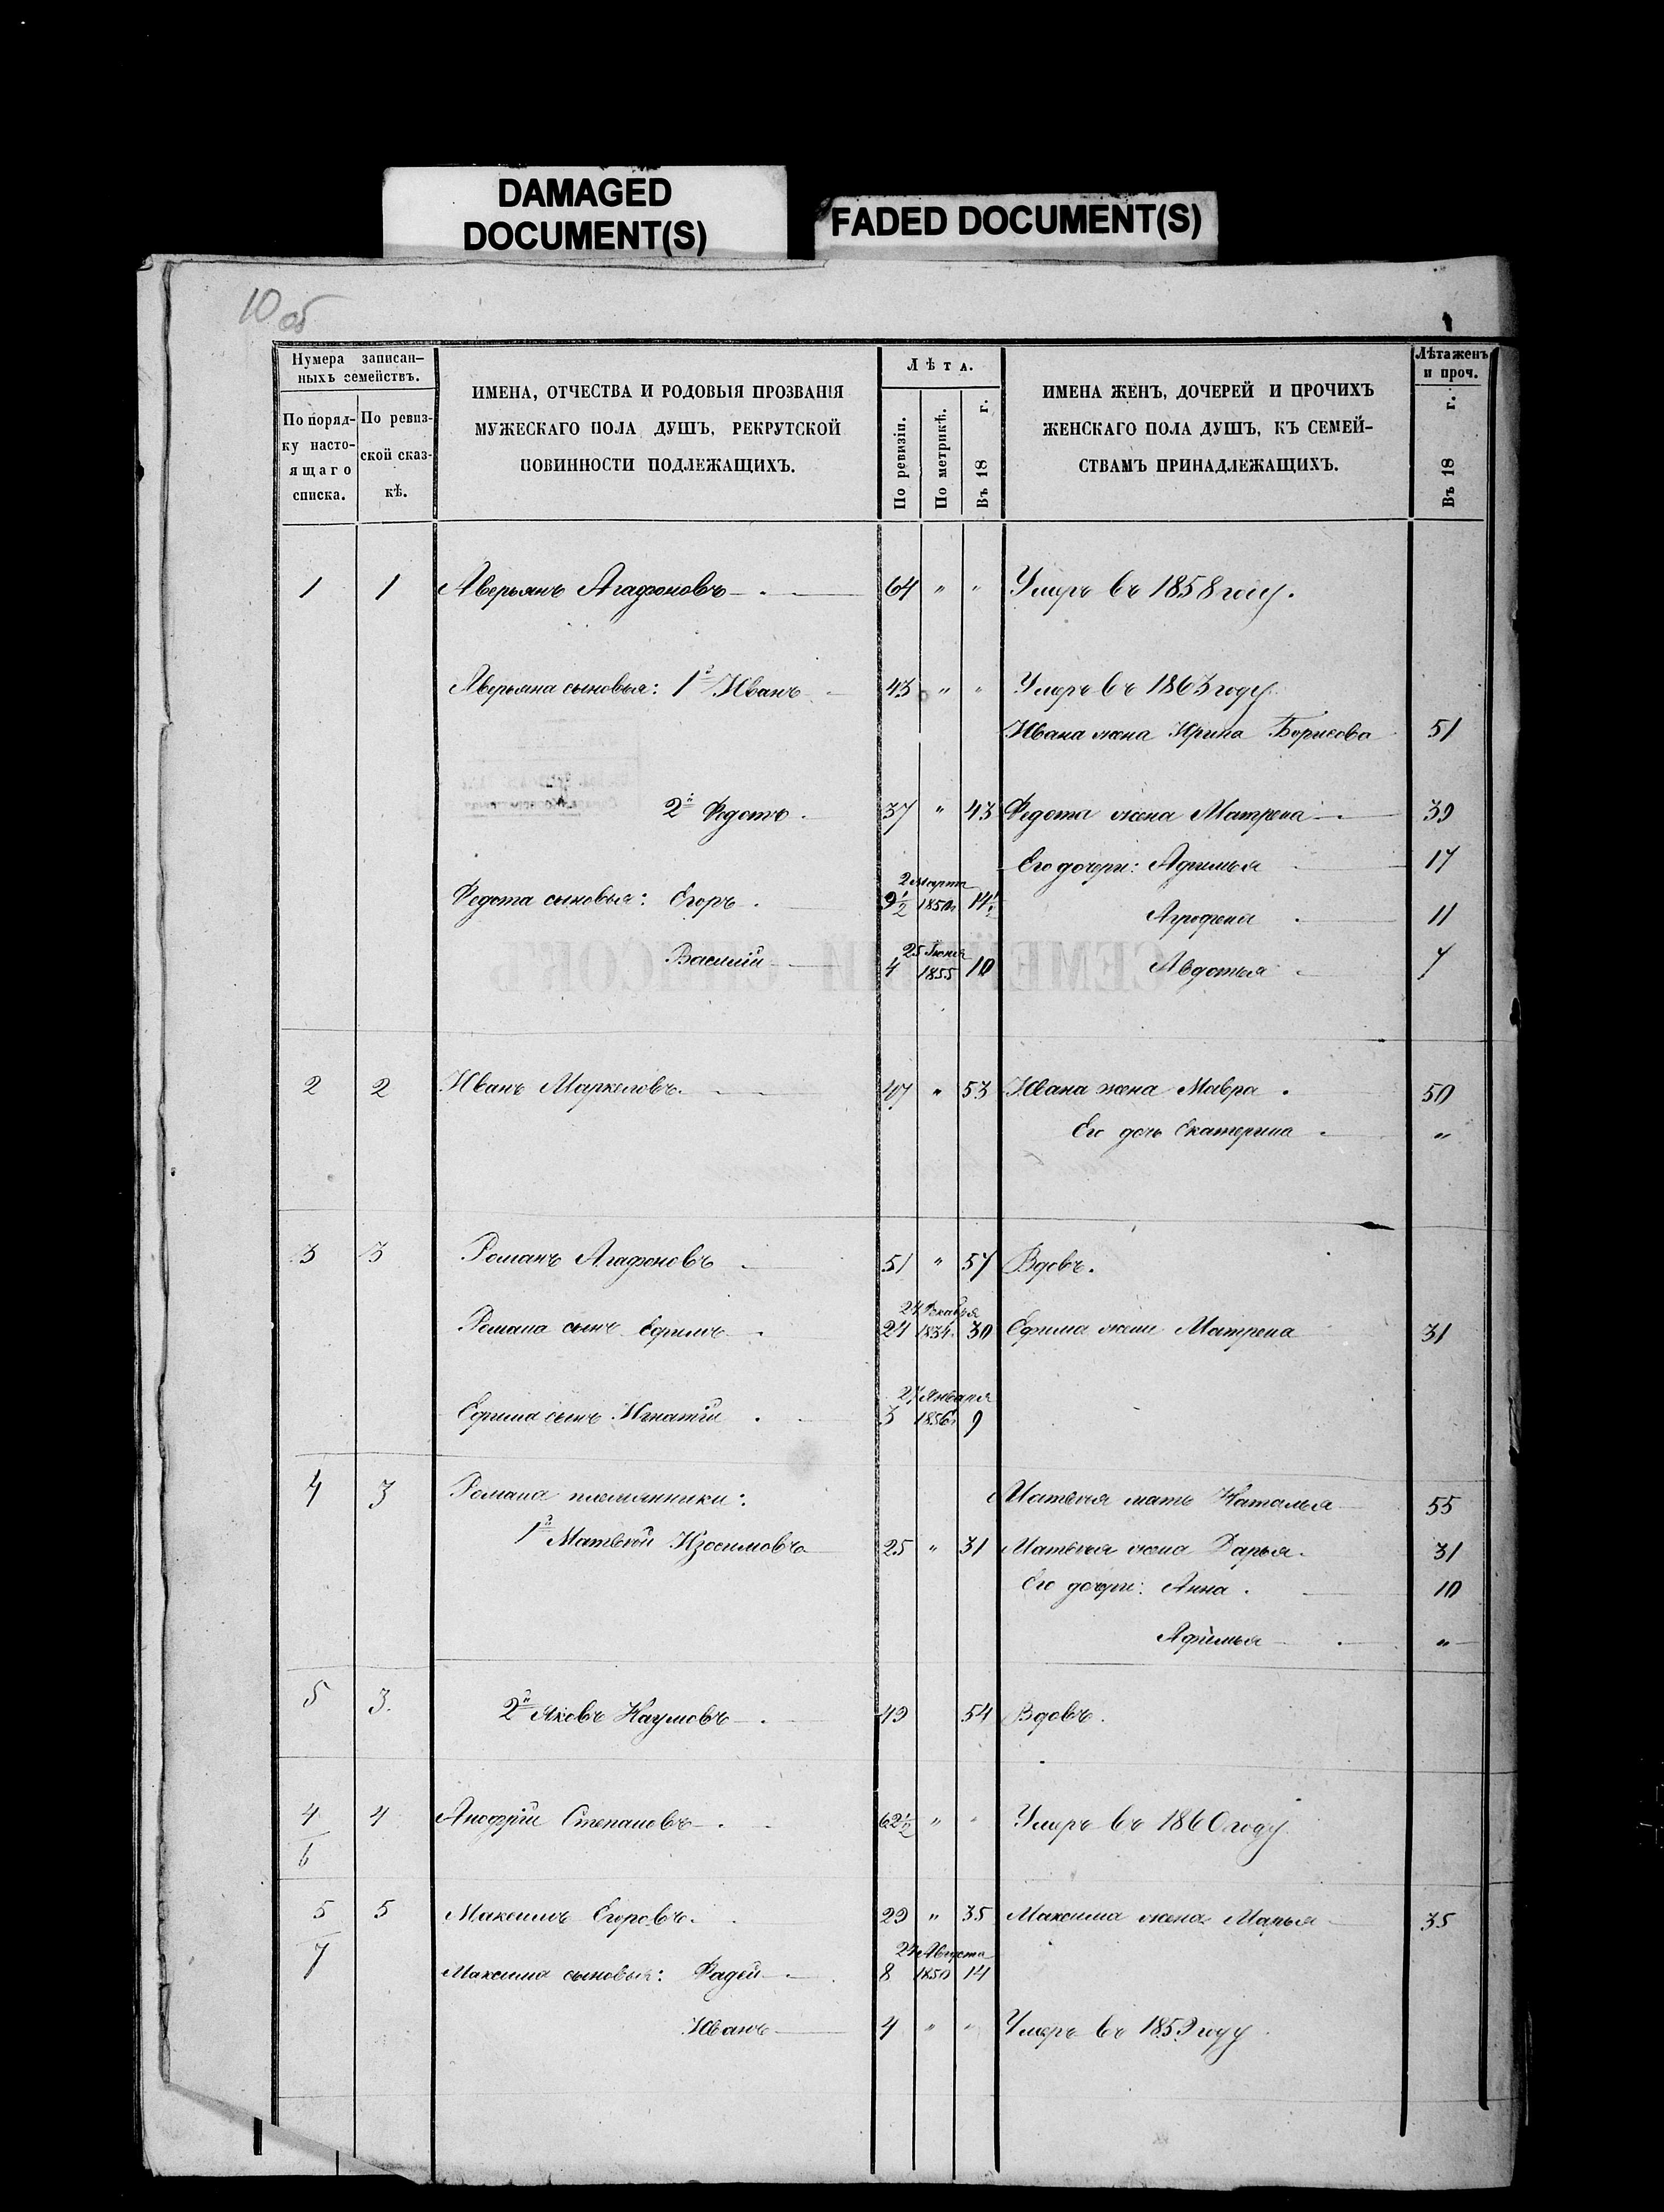 DAMAGED
DOCUMENT(S)
FADED DOCUMENT(S)
10 об
Нумера записан-
ныхъ семействъ.
По поряд-
ку насто-
ящаго
списка.
По ревиз-
ской сказ-
кѣ.
ИМЕНА, ОТЧЕСТВА И РОДОВЫЯ ПРОЗВАНІЯ
МУЖЕСКАГО ПОЛА ДУШЪ, РЕКРУТСКОЙ
ПОВИННОСТИ ПОДЛЕЖАЩИХЪ.
Лѣта.
По ревизіи.
По метрикѣ.
Въ 18 г.
ИМЕНА ЖЕНЪ, ДОЧЕРЕЙ И ПРОЧИХЪ
ЖЕНСКАГО ПОЛА ДУШЪ, КЪ СЕМЕЙ-
СТВАМЪ ПРИНАДЛЕЖАЩИХЪ.
Лѣта женъ
и проч.
Въ 18 г.
1 1 Аверьянъ Агафоновъ 64 " " Умеръ въ 1858 году.
Аверьяна сыновья: 1й Иванъ 43 " " Умеръ въ 1863 году
Ивана жена Ирина Борисова 51
2й Федотъ 37 " 43 Федота жена Матрена 39
Его дочери: Афимья 17
2 Марта
Федота сыновья: Егоръ 9 1/2 1850 14 1/2 Агрофена 11
25 Іюня
Василій 4 1855 10 Авдотья 7
2 2 Иванъ Маркеловъ 47 " 53 Ивана жена Мавра 50
Его дочь Екатерина "
3 3 Романъ Агафоновъ 51 " 57 Вдовъ.
24 Декабря
Романа сынъ Ефимъ 24 1834 30 Ефима жена Матрена 31
27 Января
Ефима сынъ Игнатій 3 1856 9
4 3 Романа племянники: Матвѣя мать Наталья 55
1й Матвѣй Изосимовъ 25 " 31 Матвѣя жена Дарья 31
Его дочери: Анна 10
Афимья "
5 3 2й Яковъ Наумовъ 49 54 Вдовъ.
4 4 Анофрій Степановъ 62 1/2 " " Умеръ въ 1860 году
6
5 5 Максимъ Егоровъ 29 " 35 Максима жена Марья 35
7
24 Августа
Максима сыновья: Фадей 8 1850 14
Иванъ 4 " " Умеръ въ 1859 году